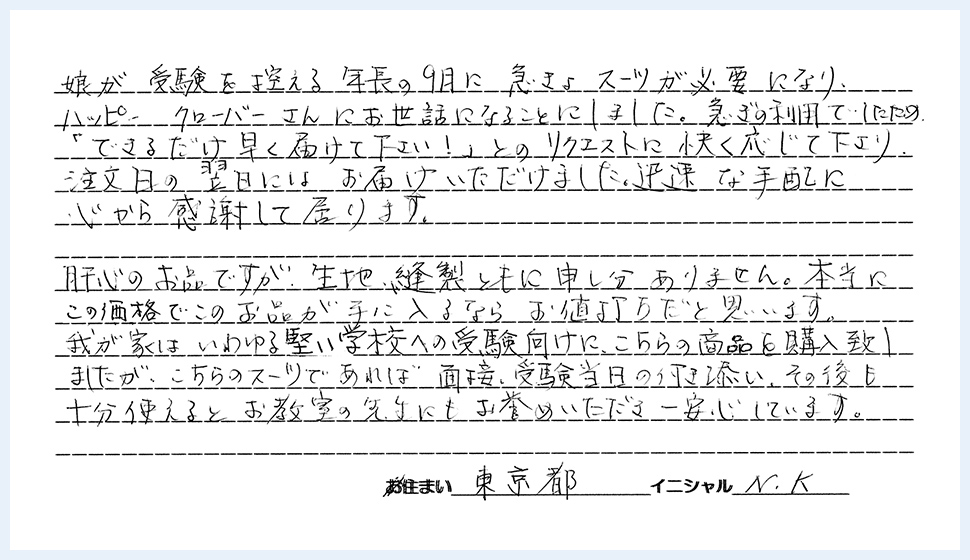 娘が 受験を控える 年長の9月に 急きょ スーツが必要 になり、
ハッピー クローバー さんにお世話になることにしました。急ぎの利用でしたため
「できるだけ早く届けて下さい!」とのリクエストに快く応じて下さり、
注文日の翌日には お届けいただけました。迅速 な手配に
心から感謝して居ります。
肝心のお品ですが、生地、縫製ともに申し分ありません。本当に
この価格でこのお品が手に入るなら お値打ちだと思います。
我が家は いわゆる堅い学校への受験向けに、こちらの商品を購入致し
ましたが、こちらのスーツであれば 面接、受験当日の付き添い、その後も
十分使えると お教室の先生にも お誉めいただき一安心しています。
お住まい 東京都 イニシャル N.K